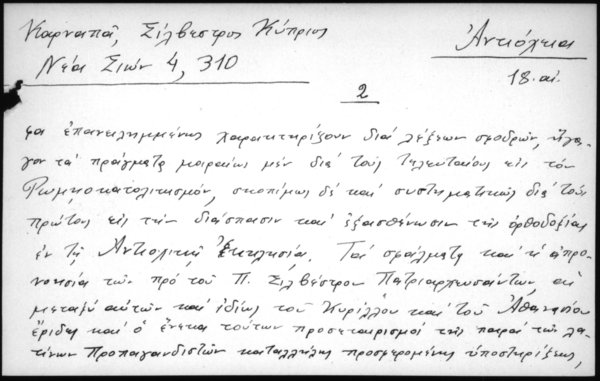 Καρναπᾶ, Σίλβεστρος Κύπριος
Ἀντιόχεια
Νέα Σιών 4, 310
18. αἰ.
2
φα ἐπανειλημμένως χαρακτηρίζουν διὰ λέξεων σφοδρῶν, ἤγα-
γον τὰ πράγματα μοιραίως μὲν διὰ τοὺς τελευταίους εἰς τὸν
Ρωμηοκατολικισμόν, σκοπίμως δὲ καὶ συστηματικῶς διὰ τοὺς
πρώτους εἰς τὴν διάσπασιν καὶ ἐξασθένωσιν τῆς ὀρθοδοξίας
ἐν τῇ Ἀντιοχικῇ Ἐκκλησίᾳ. Τὰ σφάλματα καὶ ἡ ἀπρο-
νοησία τῶν πρὸ τοῦ Π. Σιλβέστρου Πατριαρχευσάντων, αἱ
μεταξὺ αὐτῶν καὶ ἰδίως τοῦ Κυρίλλου καὶ τοῦ Ἀθανασίου
ἔριδες καὶ ὁ ἕνεκα τούτων προσεταιρισμὸς τῆς παρὰ τῶν λα-
τίνων Προπαγανδιστῶν καταλλήλως προσφερομένης ὑποστηρίξεως,